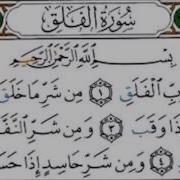 سُورَةُ الْفَلَقِ
بِسْمِ اللَّهِ الرَّحْمَٰنِ الرَّحِيمِ
بِّ الْفَلَقِ ١ مِن شَرِّ مَا خَلَقَ
ذَا وَقَبَ ٣ وَمِن شَرِّ النَّفَّ
٤ وَمِن شَرِّ حَاسِدٍ إِذَا حَسَ